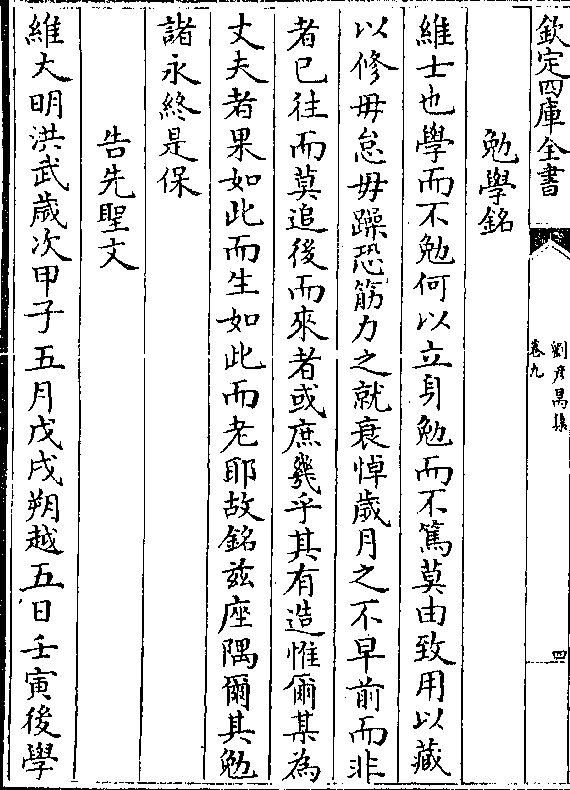 欽定四庫全書
劉彥昺集
卷九
四
勉學銘
維士也學而不勉何以立身勉而不篤莫由致用以藏
以修毋怠毋躁恐筋力之就衰悼歲月之不早前而非
者已往而莫追後而來者或庶幾乎其有造惟爾某為
丈夫者果如此而生如此而老耶故銘兹座隅爾其勉
諸永終是保
告先聖文
維大明洪武歲次甲子五月戊戌朔越五日壬寅後學